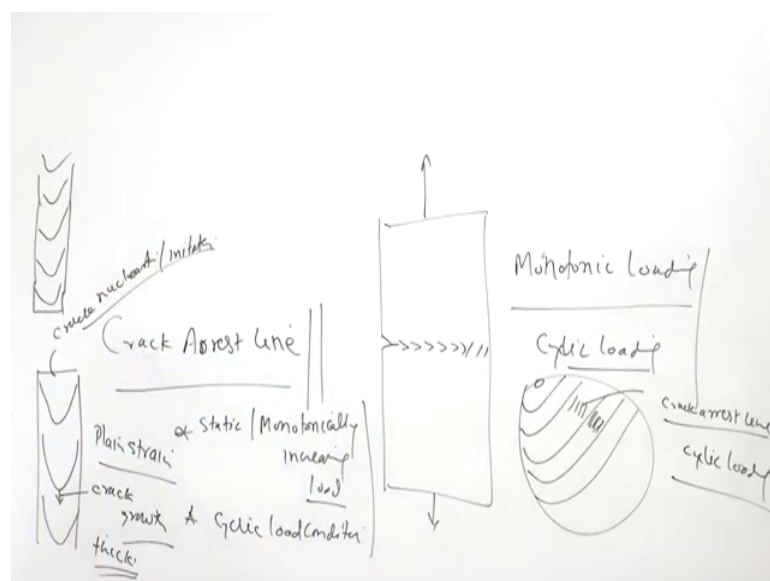 crack nucleati/initati
Crack Arrest line
Plain strain
* Static / Monotonically
increasing
load
crack
growth
* Cyclic load condition
thick
Monotonic loading
Cyclic loading
crack arrest line
cyclic load